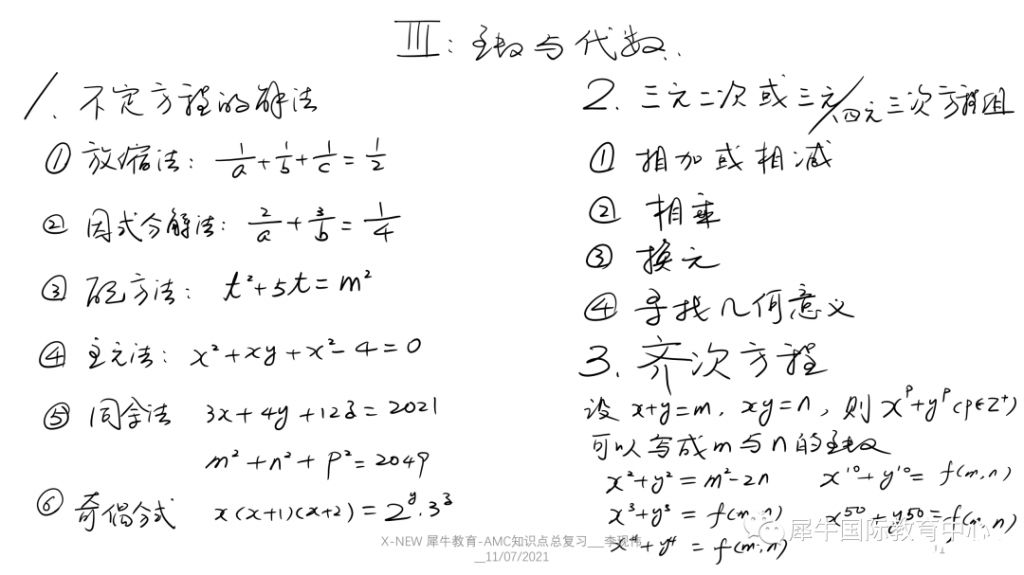 III: 函数与代数.
1. 不定方程的解法
① 放缩法: 1/a + 1/b + 1/c = 1/2
② 因式分解法: 2/a + 3/b = 1/4
③ 配方法: t²+5t=m²
④ 主元法: x²+xy+x²-4=0
⑤ 同余法 3x+4y+123=2021
m²+n²+p²=2049
⑥ 奇偶分式 x(x+1)(x+2)=2^y·3^z
2. 三元二次或三元/四元三次方程组
① 相加或相减
② 相乘
③ 换元
④ 寻找几何意义
3. 齐次方程
设 x+y=m, xy=n, 则 x^p+y^p (p∈Z⁺)
可以写成m与n的函数
x²+y²=m²-2n x¹⁰+y¹⁰=f(m,n)
x³+y³=f(m,n) x⁵⁰+y50=f(m,n)
x⁴+y⁴=f(m,n)
犀牛国际教育中心
X-NEW 犀牛教育-AMC知识点总复习__李现伟
__11/07/2021
12